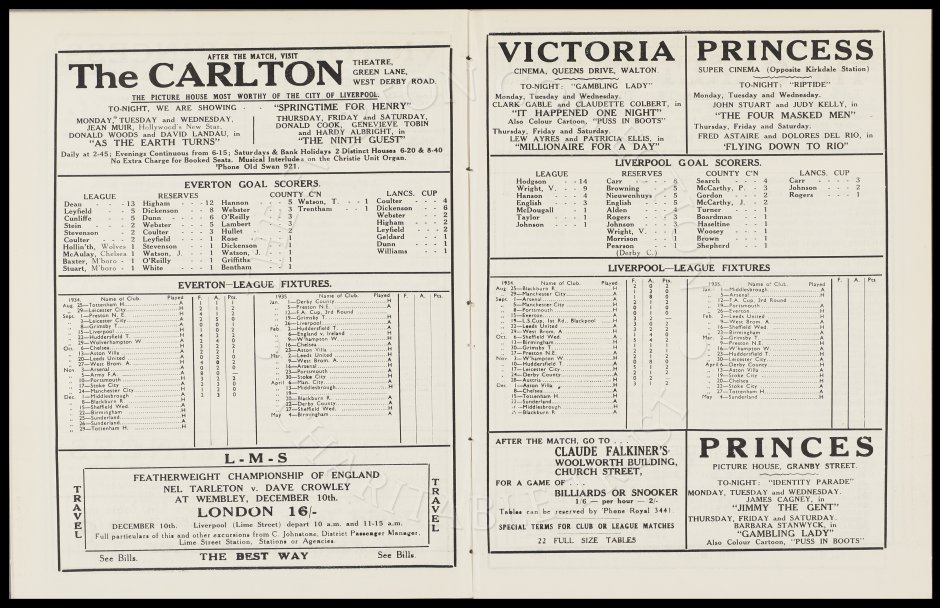 AFTER THE MATCH, VISIT
The CARLTON
THEATRE,
GREEN LANE,
WEST DERBY ROAD.
THE PICTURE HOUSE MOST WORTHY OF THE CITY OF LIVERPOOL.
TO-NIGHT, WE ARE SHOWING - - "SPRINGTIME FOR HENRY"
MONDAY, TUESDAY and WEDNESDAY,
JEAN MUIR, Hollywood's New Star,
DONALD WOODS and DAVID LANDAU, in
"AS THE EARTH TURNS"
THURSDAY, FRIDAY and SATURDAY,
DONALD COOK, GENEVIEVE TOBIN
and HARDY ALBRIGHT, in
"THE NINTH GUEST"
Daily at 2-45; Evenings Continuous from 6-15; Saturdays & Bank Holidays 2 Distinct Houses 6-20 & 8-40
No Extra Charge for Booked Seats. Musical Interludes on the Christie Unit Organ.
'Phone Old Swan 921.
EVERTON GOAL SCORERS.
LEAGUE
Dean - - - 13
Leyfield - - 5
Cunliffe - - 5
Stein - - - 2
Stevenson - - 2
Coulter - - 2
Hollin'th, Wolves 1
McAulay, Chelsea 1
Baxter, M'boro - 1
Stuart, M'boro - 1
RESERVES
Higham - - 12
Dickenson - - 8
Dunn - - - 6
Webster - - 5
Coulter - - 3
Leyfield - - 1
Stevenson - - 1
Watson, J. - - 1
O'Reilly - - 1
White - - - 1
COUNTY C'N
Hannon - - 5
Webster - - 3
O'Reilly - - 3
Leyfield - - 2
Hullet - - 2
Rose - - - 1
Dickenson - - 1
Watson, J. - - 1
Griffiths - - 1
Bentham - - 1
Watson, T. - - 1
Trentham - - 1
LANCS. CUP
Coulter - - - 4
Dickenson - - 6
Webster - - - 2
Higham - - - 2
Leyfield - - - 2
Geldard - - 1
Dunn - - - 1
Williams - - 1
EVERTON—LEAGUE FIXTURES.
1934. Name of Club. Played F. A. Pts.
Aug. 25—Tottenham H.
29—Leicester City
Sept. 1—Preston N. E.
3—Leicester City
8—Grimsby T.
15—Liverpool
22—Huddersfield T.
29—Wolverhampton W
Oct. 6—Chelsea
13—Aston Villa
20—Leeds United
27—West Brom. A.
Nov. 3—Arsenal
5—Army F.A.
10—Portsmouth
17—Stoke City
24—Manchester City
Dec. 1—Middlesbrough
8—Blackburn R.
15—Sheffield Wed.
22—Birmingham
25—Sunderland
26—Sunderland
29—Tottenham H.
1935. Name of Club. Played F. A. Pts.
Jan. 1—Derby County
5—Preston N.E.
12—F.A. Cup, 3rd Round
19—Grimsby T.
26—Liverpool
Feb. 2—Huddersfield T.
6—England v. Ireland
9—W'hampton W.
16—Chelsea
23—Aston Villa
Mar. 2—Leeds United
9—West Brom. A.
16—Arsenal
23—Portsmouth
30—Stoke City
April 6—Man. City
13—Middlesbrough
20—Blackburn R.
22—Derby County
27—Sheffield Wed.
May 4—Birmingham
L-M-S
TRAVEL
FEATHERWEIGHT CHAMPIONSHIP OF ENGLAND
NEL TARLETON v. DAVE CROWLEY
AT WEMBLEY, DECEMBER 10th.
LONDON 16/-
DECEMBER 10th. Liverpool (Lime Street) depart 10 a.m. and 11-15 a.m.
Full particulars of this and other excursions from C. Johnstone, District Passenger Manager,
Lime Street Station, Stations or Agencies.
TRAVEL
See Bills. THE BEST WAY See Bills.
VICTORIA
CINEMA, QUEENS DRIVE, WALTON
TO-NIGHT: "GAMBLING LADY"
Monday, Tuesday and Wednesday.
CLARK GABLE and CLAUDETTE COLBERT, in
"IT HAPPENED ONE NIGHT"
Also Colour Cartoon, "PUSS IN BOOTS"
Thursday, Friday and Saturday.
LEW AYRES and PATRICIA ELLIS, in
"MILLIONAIRE FOR A DAY"
PRINCESS
SUPER CINEMA (Opposite Kirkdale Station)
TO-NIGHT: "RIPTIDE"
Monday, Tuesday and Wednesday.
JOHN STUART and JUDY KELLY, in
"THE FOUR MASKED MEN"
Thursday, Friday and Saturday.
FRED ASTAIRE and DOLORES DEL RIO, in
'FLYING DOWN TO RIO"
LIVERPOOL GOAL SCORERS.
LEAGUE
Hodgson - - 14
Wright, V. - - 9
Hanson - - - 4
English - - - 3
McDougall - - 1
Taylor - - - 1
Johnson - - - 1
RESERVES
Carr - - - 6
Browning - - 5
Nieuwenhuys - 5
English - - - 5
Alden - - - 4
Rogers - - - 3
Johnson - - - 3
Wright, V. - - 1
Morrison - - 1
Pearson - - 1
(Derby C.)
COUNTY C'N
Search - - - 4
McCarthy, P. - 3
Gordon - - - 2
McCarthy, J. - 2
Turner - - - 1
Boardman - - 1
Haseltine - - 1
Woosey - - - 1
Brown - - - 1
Shepherd - - 1
LANCS. CUP
Carr - - - 3
Johnson - - 2
Rogers - - - 1
LIVERPOOL—LEAGUE FIXTURES
1934. Name of Club. Played F. A. Pts.
Aug. 25—Blackburn R.
29—Manchester City
Sept. 1—Arsenal
5—Manchester City
8—Portsmouth
15—Everton
19—L.S.Cup, 1st Rd., Blackpool
22—Leeds United
29—West Brom. A.
Oct. 6—Sheffield Wed.
13—Birmingham
20—Grimsby T.
27—Preston N.E.
Nov. 3—W'hampton W.
10—Huddersfield T.
17—Leicester City
24—Derby County
28—Austria
Dec. 1—Aston Villa
8—Chelsea
15—Tottenham H.
22—Sunderland
—Middlesbrough
—Blackburn R.
1935. Name of Club. Played F. A. Pts.
Jan. 1—Middlesbrough
5—Arsenal
12—F.A. Cup, 3rd Round
19—Portsmouth
26—Everton
Feb. 2—Leeds United
9—West Brom. A.
16—Sheffield Wed.
23—Birmingham
Mar. 2—Grimsby T.
9—Preston N.E.
16—W'hampton W.
23—Huddersfield T.
30—Leicester City
April 6—Derby County
13—Aston Villa
19—Stoke City
20—Chelsea
22—Stoke City
27—Tottenham H.
May 4—Sunderland
AFTER THE MATCH, GO TO . . .
CLAUDE FALKINER'S
WOOLWORTH BUILDING,
CHURCH STREET,
FOR A GAME OF . . .
BILLIARDS OR SNOOKER
1/6 — per hour — 2/-
Tables can be reserved by 'Phone Royal 3441.
SPECIAL TERMS FOR CLUB OR LEAGUE MATCHES
22 FULL SIZE TABLES
PRINCES
PICTURE HOUSE, GRANBY STREET.
TO-NIGHT: "IDENTITY PARADE"
MONDAY, TUESDAY and WEDNESDAY.
JAMES CAGNEY, in
"JIMMY THE GENT"
THURSDAY, FRIDAY and SATURDAY.
BARBARA STANWYCK, in
"GAMBLING LADY"
Also Colour Cartoon, "PUSS IN BOOTS"